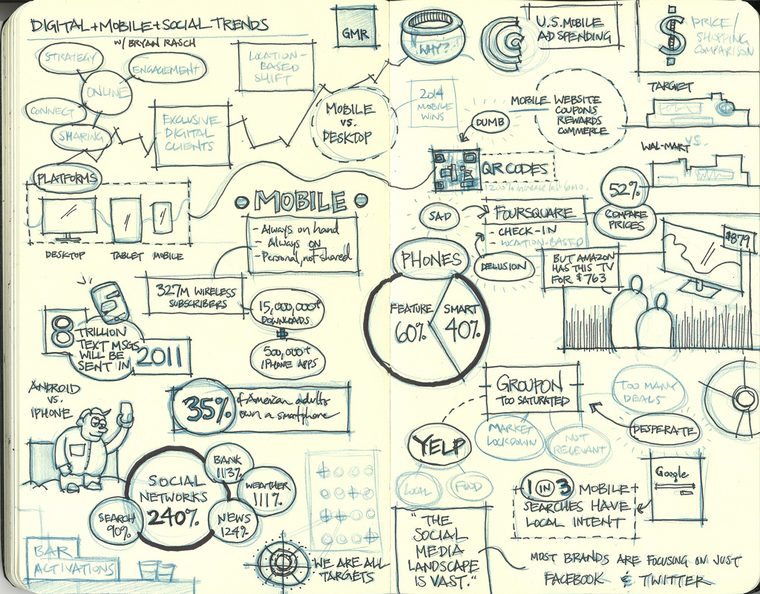 DIGITAL+MOBILE+SOCIAL TRENDS
W/ BRYAN RASCH
GMR
STRATEGY
ENGAGEMENT
ONLINE
CONNECT
SHARING
PLATFORMS
LOCATION-
BASED
SHIFT
EXCLUSIVE
DIGITAL
CLIENTS
MOBILE
VS.
DESKTOP
DESKTOP
TABLET
MOBILE
MOBILE
- Always on hand
- Always ON
- Personal, not shared
327M WIRELESS
SUBSCRIBERS
15,000,000+
DOWNLOADS
500,000+
IPHONE APPS
8
TRILLION
TEXT MSGS
WILL BE
SENT IN
2011
35%
of American adults
own a smartphone
ANDROID
VS.
IPHONE
SOCIAL
NETWORKS
240%
BANK
113%
WEATHER
111%
NEWS
124%
SEARCH
90%
BAR
ACTIVATIONS
WE ARE ALL
TARGETS
WHY?
U.S. MOBILE
AD SPENDING
$
PRICE/
SHOPPING
COMPARISON
2014
MOBILE
WINS
DUMB
MOBILE
WEBSITE
COUPONS
REWARDS
COMMERCE
TARGET
VS.
WAL-MART
QR CODES
SAD
FOURSQUARE
- CHECK-IN
- LOCATION-BASED
DELUSION
52%
COMPARE
PRICES
$879
BUT AMAZON
HAS THIS TV
FOR $763
PHONES
FEATURE
60%
SMART
40%
GROUPON
TOO SATURATED
MARKET
LOCKDOWN
NOT
RELEVANT
TOO MANY
DEALS
DESPERATE
YELP
LOCAL
FOOD
1 IN 3 MOBILE
SEARCHES HAVE
LOCAL INTENT
Google
"THE
SOCIAL
MEDIA
LANDSCAPE
IS VAST."
MOST BRANDS ARE FOCUSING ON JUST
FACEBOOK & TWITTER